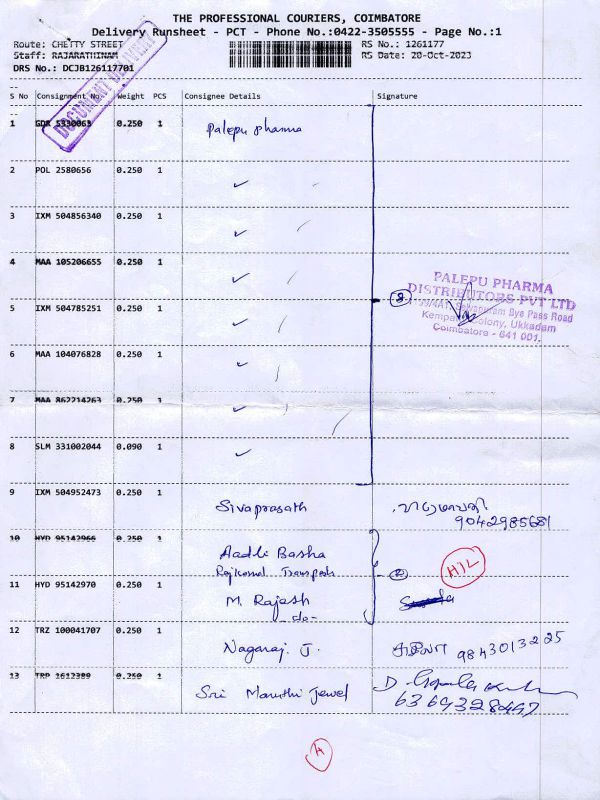 THE PROFESSIONAL COURIERS, COIMBATORE
Delivery Runsheet - PCT - Phone No.:0422-3505555 - Page No.:1
Route: CHETTY STREET RS No.: 1261177
Staff: RAJARATHINAM RS Date: 20-Oct-2023
DRS No.: DCJB126117701
DOCUMENT DELIVERY
S No Consignment No. Weight PCS Consignee Details Signature
1 GDR 5330063 0.250 1 Palepu pharma
2 POL 2580656 0.250 1 ✓
3 IXM 504856340 0.250 1 ✓
4 MAA 105206655 0.250 1 ✓
8
PALEPU PHARMA
DISTRIBUTORS PVT LTD
Bye Pass Road
Colony, Ukkadam
Coimbatore - 641 001.
5 IXM 504785251 0.250 1 ✓
6 MAA 104076828 0.250 1 ✓
7 MAA 862214263 0.250 1 ✓
8 SLM 331002044 0.090 1 ✓
9 IXM 504952473 0.250 1 Sivaprasath
9042985681
10 HYD 95142966 0.250 1 Aadli Basha
Rajkamal Transports
2
11 HYD 95142970 0.250 1 M. Rajesh
-do-
12 TRZ 100041707 0.250 1 Nagaraj. J. 9843013225
13 TRP 1612389 0.250 1 Sri Maruthi Jewel
6369328497
A